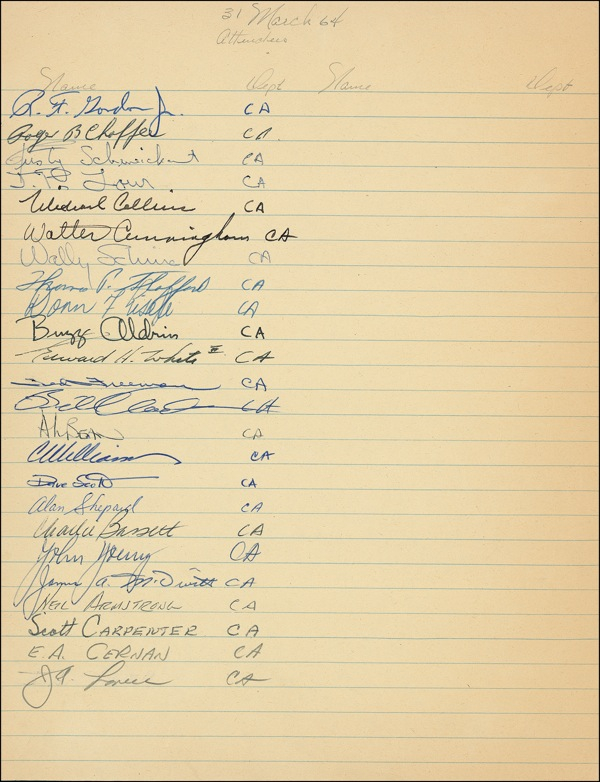 31 March 64
Attendees
Name Dept Name Dept
R. F. Gordon Jr. CA
Roger B Chaffee CA
Rusty Schweickart CA
CA
Michael Collins CA
Walter Cunningham CA
Wally Schirra CA
Thomas P. Stafford CA
Donn F Eisele CA
Buzz Aldrin CA
Edward H. White II CA
Ted Freeman CA
Bill CA
Al Bean CA
CWilliams CA
Dave Scott CA
Alan Shepard CA
Charlie Bassett CA
John Young CA
James A. McDivitt CA
NEIL ARMSTRONG CA
Scott CARPENTER CA
E.A. CERNAN CA
J A Lovell CA